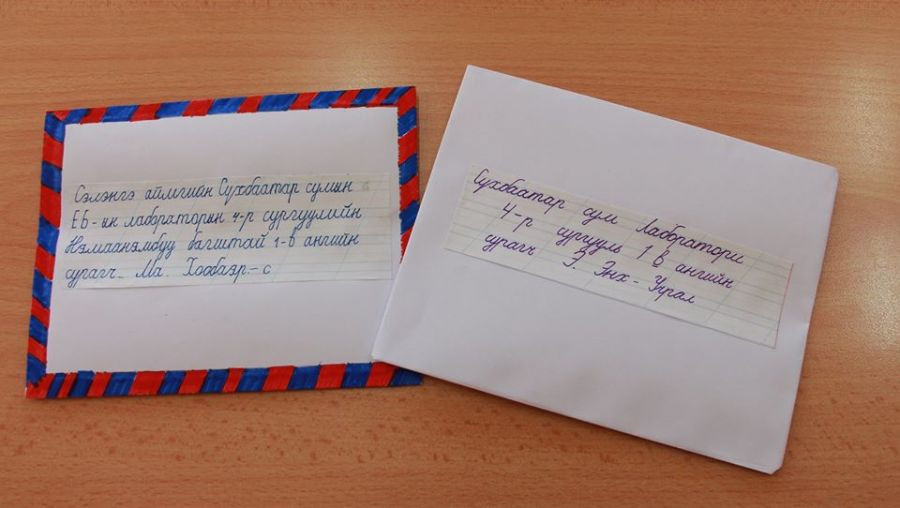 Сэлэнгэ аймгийн Сүхбаатар сумын
ЕБ-ын лаборатори 4-р сургуулийн
Нэмаанэмбуу багштай 1-в ангийн
сурагч Ма. Хосбаяр-с
Сүхбаатар сум Лаборатори
4-р сургууль 1 в ангийн
сурагч Э. Энх-Учрал